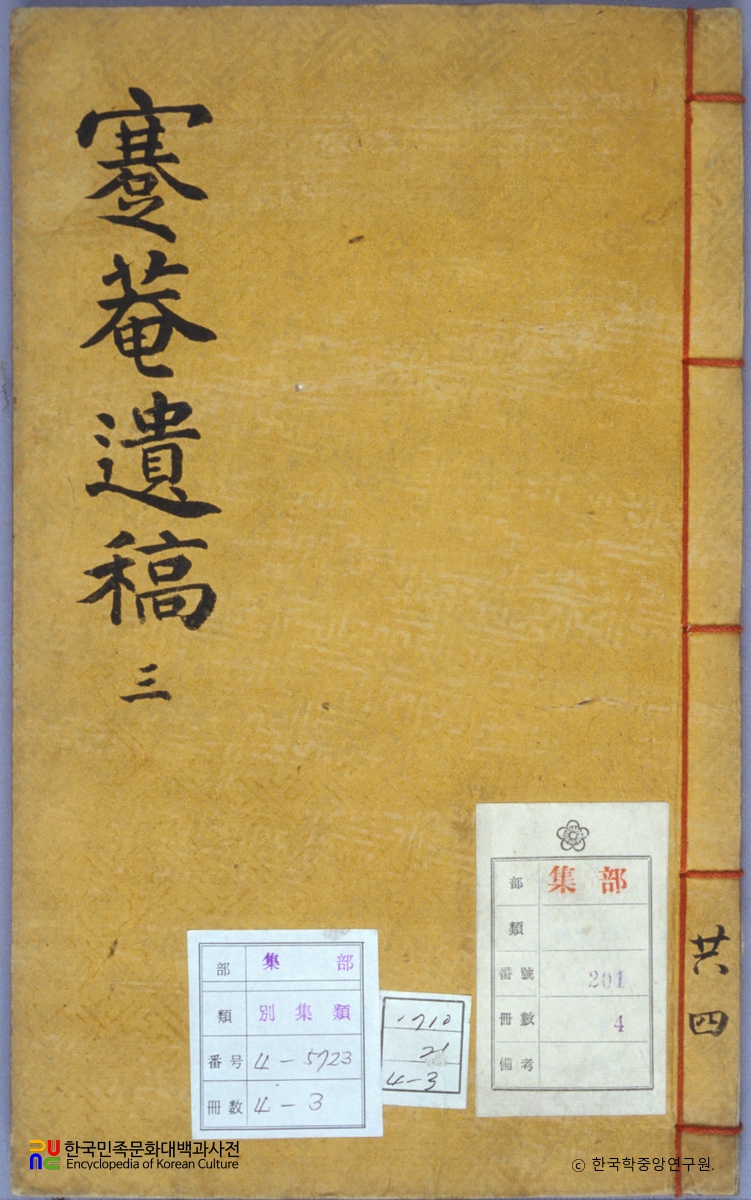 蹇菴遺稿
三
共四
部 集部
類
番號 201
冊數 4
備考
部 集 部
類 別集類
番号 4-5723
冊數 4-3
1710
21
4-3
한국민족문화대백과사전
Encyclopedia of Korean Culture
ⓒ 한국학중앙연구원.